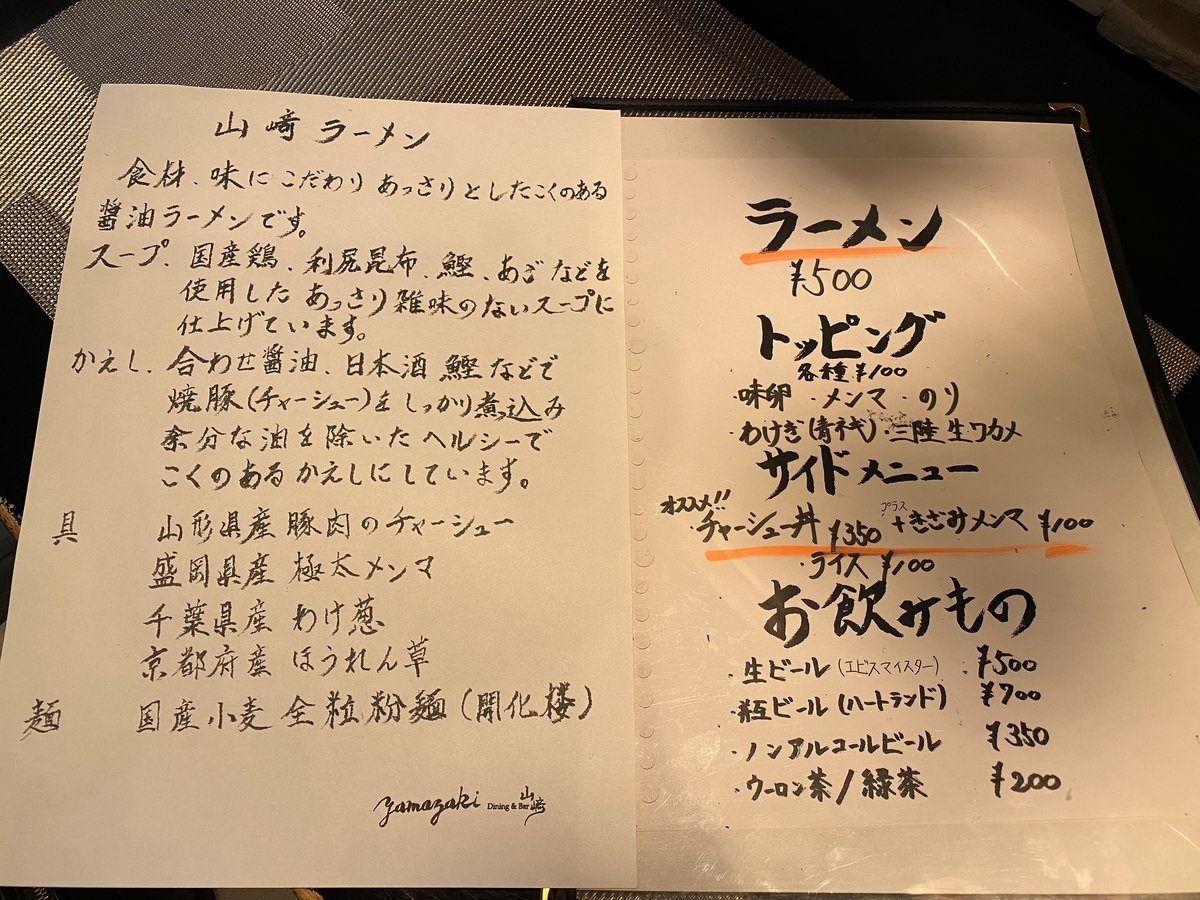 山﨑ラーメン
食材、味にこだわりあっさりとしたこくのある
醤油ラーメンです。
スープ、国産鶏、利尻昆布、鰹、あごなどを
使用したあっさり雑味のないスープに
仕上げています。
かえし、合わせ醤油、日本酒 鰹などで
焼豚(チャーシュー)をしっかり煮込み
余分な油を除いたヘルシーで
こくのあるかえしにしています。
具 山形県産豚肉のチャーシュー
盛岡県産 極太メンマ
千葉県産 わけ葱
京都府産 ほうれん草
麺 国産小麦 全粒粉麺(開化楼)
yamazaki Dining & Bar 山﨑
ラーメン
¥500
トッピング
各種¥100
・味卵 ・メンマ ・のり
・わけぎ(青ネギ)・三陸生ワカメ
サイドメニュー
オススメ!!
プラス
・チャーシュー丼 ¥350 +きざみメンマ ¥100
・ライス ¥100
お飲みもの
・生ビール(エビスマイスター) ¥500
・瓶ビール(ハートランド) ¥700
・ノンアルコールビール ¥350
・ウーロン茶/緑茶 ¥200